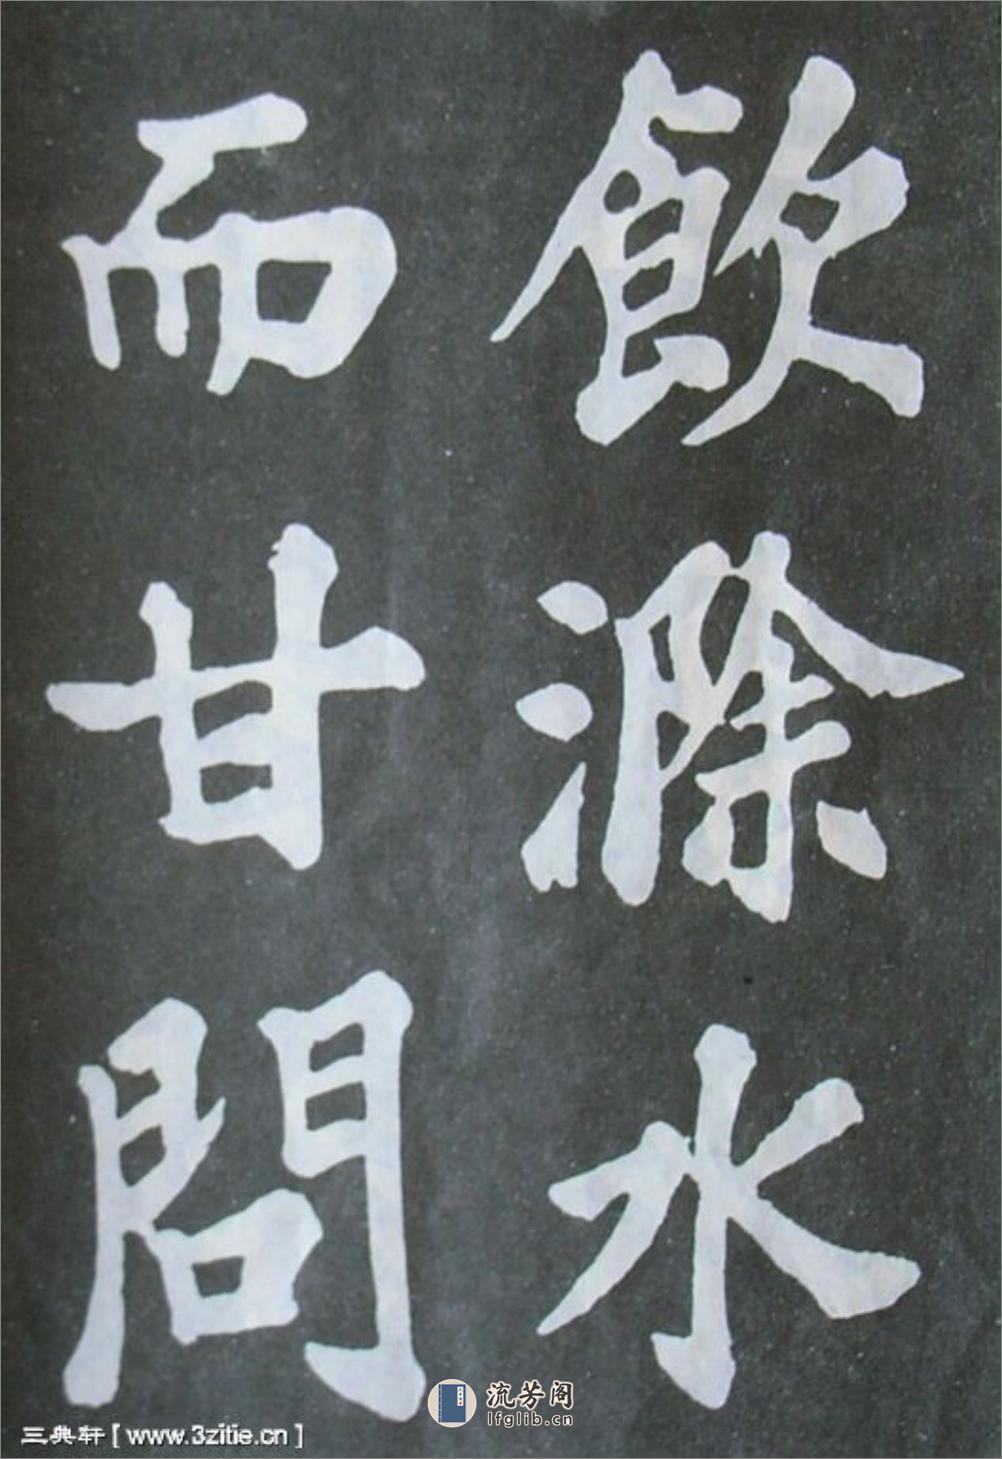 飲滁水
而甘問
流芳阁
lfglib.cn
三典轩 [ www.3zitie.cn ]